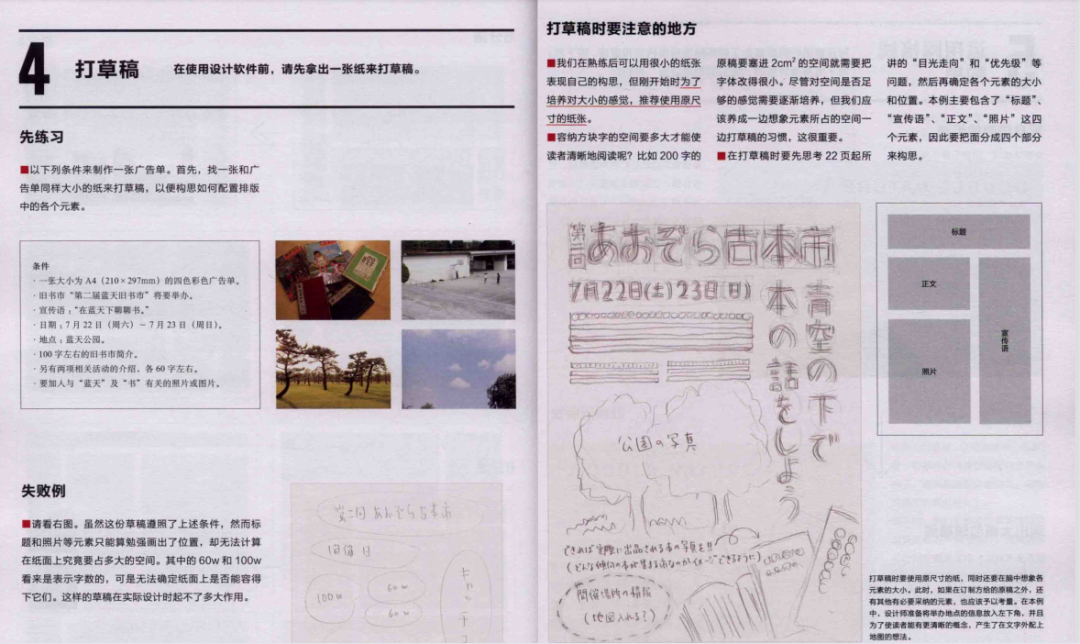 4
打草稿
在使用设计软件前，请先拿出一张纸来打草稿。
先练习
■以下列条件来制作一张广告单。首先，找一张和广
告单同样大小的纸来打草稿，以便构思如何配置排版
中的各个元素。
条件
· 一张大小为 A4（210×297mm）的四色彩色广告单。
· 旧书市“第二届蓝天旧书市”将要举办。
· 宣传语：“在蓝天下聊聊书。”
· 日期：7 月 22 日（周六）~ 7 月 23 日（周日）。
· 地点：蓝天公园。
· 100 字左右的旧书市简介。
· 另有两项相关活动的介绍。各 60 字左右。
· 要加入与“蓝天”及“书”有关的照片或图片。
失败例
■请看右图。虽然这份草稿遵照了上述条件，然而标
题和照片等元素只能算勉强画出了位置，却无法计算
在纸面上究竟要占多大的空间。其中的 60w 和 100w
看来是表示字数的，可是无法确定纸面上是否能容得
下它们。这样的草稿在实际设计时起不了多大作用。
100w
60w
60w
打草稿时要注意的地方
■我们在熟练后可以用很小的纸张
表现自己的构思，但刚开始时为了
培养对大小的感觉，推荐使用原尺
寸的纸张。
■容纳方块字的空间要多大才能使
读者清晰地阅读呢？比如 200 字的
原稿要塞进 2cm² 的空间就需要把
字体改得很小。尽管对空间是否足
够的感觉需要逐渐培养，但我们应
该养成一边想象元素所占的空间一
边打草稿的习惯，这很重要。
■在打草稿时要先思考 22 页起所
讲的“目光走向”和“优先级”等
问题，然后再确定各个元素的大小
和位置。本例主要包含了“标题”、
“宣传语”、“正文”、“照片”这四
个元素，因此要把面分成四个部分
来构思。
第二回
あおぞら古本市
7月22日(土)23日(日)
青空の下で
本の話をしよう
公園の写真
できれば実際に出品される本の写真を!!
開催場所の情報
(地図入れる?)
标题
正文
宣传语
照片
打草稿时要使用原尺寸的纸，同时还要在脑中想象各
元素的大小。此时，如果在订制方给的原稿之外，还
有其他有必要采纳的元素，也应该予以考量。在本例
中，设计师准备将举办地点的信息放入左下角，并且
为了使读者能有更清晰的概念，产生了在文字外配上
地图的想法。